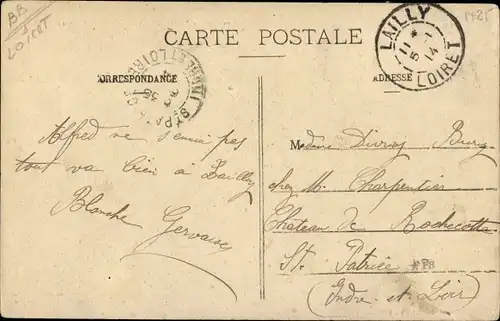 BB
LOIRET
1425
CARTE POSTALE
LAILLY
11 * 5-1 14
LOIRET
CORRESPONDANCE
ADRESSE
INDRE ET LOIRE
Alfred ne s'ennui pas
tout va bien à Lailly
Blanche Gervaise
Madame Divray
chez M. Charpentier
Château de Rochecotte
St. Patrice *P8
(Indre-et-Loir)